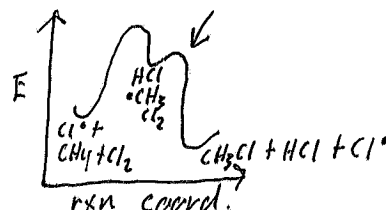 E
HCl
•CH3
Cl2
Cl• +
CH4 + Cl2
CH3Cl + HCl + Cl•
rxn coord.